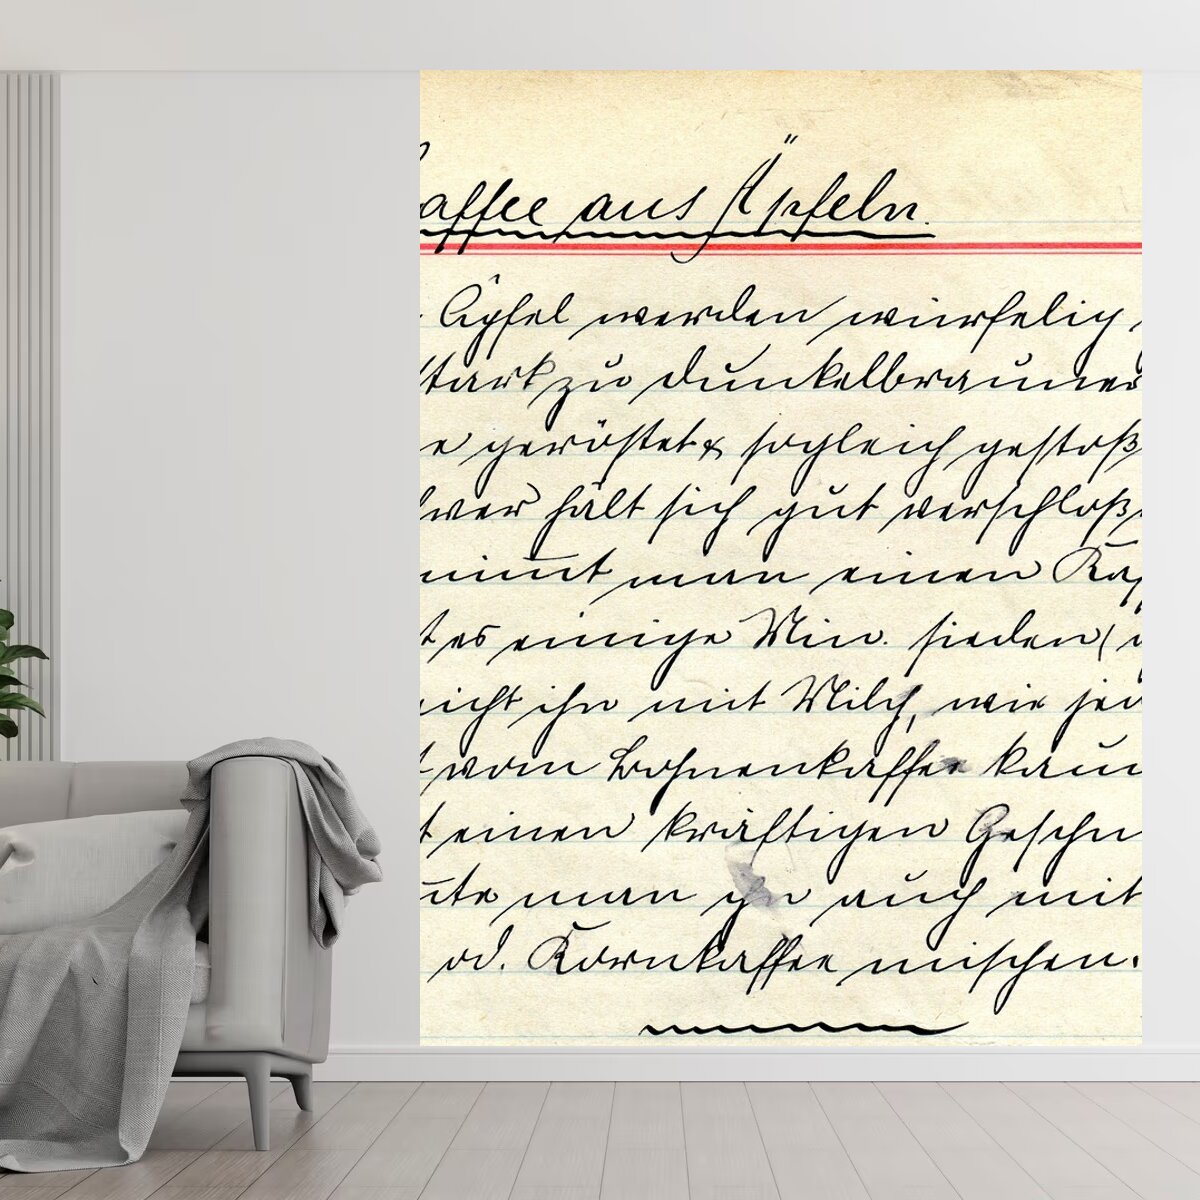 affee aus Äpfeln.
Äpfel werden würfelig
tark zu dunkelbrauner
e geröstet & sogleich gestoß
lver hält sich gut verschloß
nimmt man einen Ka
t es einige Min. sieden (
eicht ihn mit Milch, wie jed
t vom Bohnenkaffee kaum
t einen kräftigen Geschm
nte man ihn auch mit
od. Kornkaffee mischen.